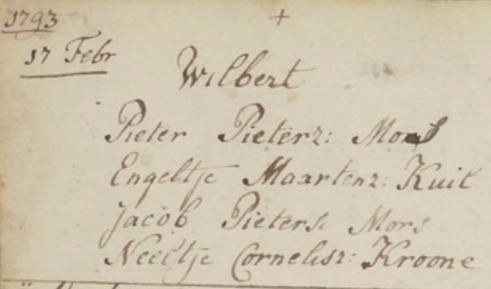 1793
17 Febr
Wilbert
Pieter Pieterz: Mors
Engeltje Maartenz: Kuit
Jacob Pieters: Mors
Neeltje Cornelisz: Kroone